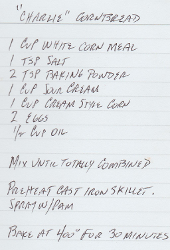 "CHARLIE" CORNBREAD
1 CUP WHITE CORN MEAL
1 TSP SALT
2 TSP BAKING POWDER
1 CUP SOUR CREAM
1 CUP CREAM STYLE CORN
2 EGGS
1/2 CUP OIL
MIX UNTIL TOTALLY COMBINED
PREHEAT CAST IRON SKILLET.
SPRAY W/PAM
BAKE AT 400° FOR 30 MINUTES